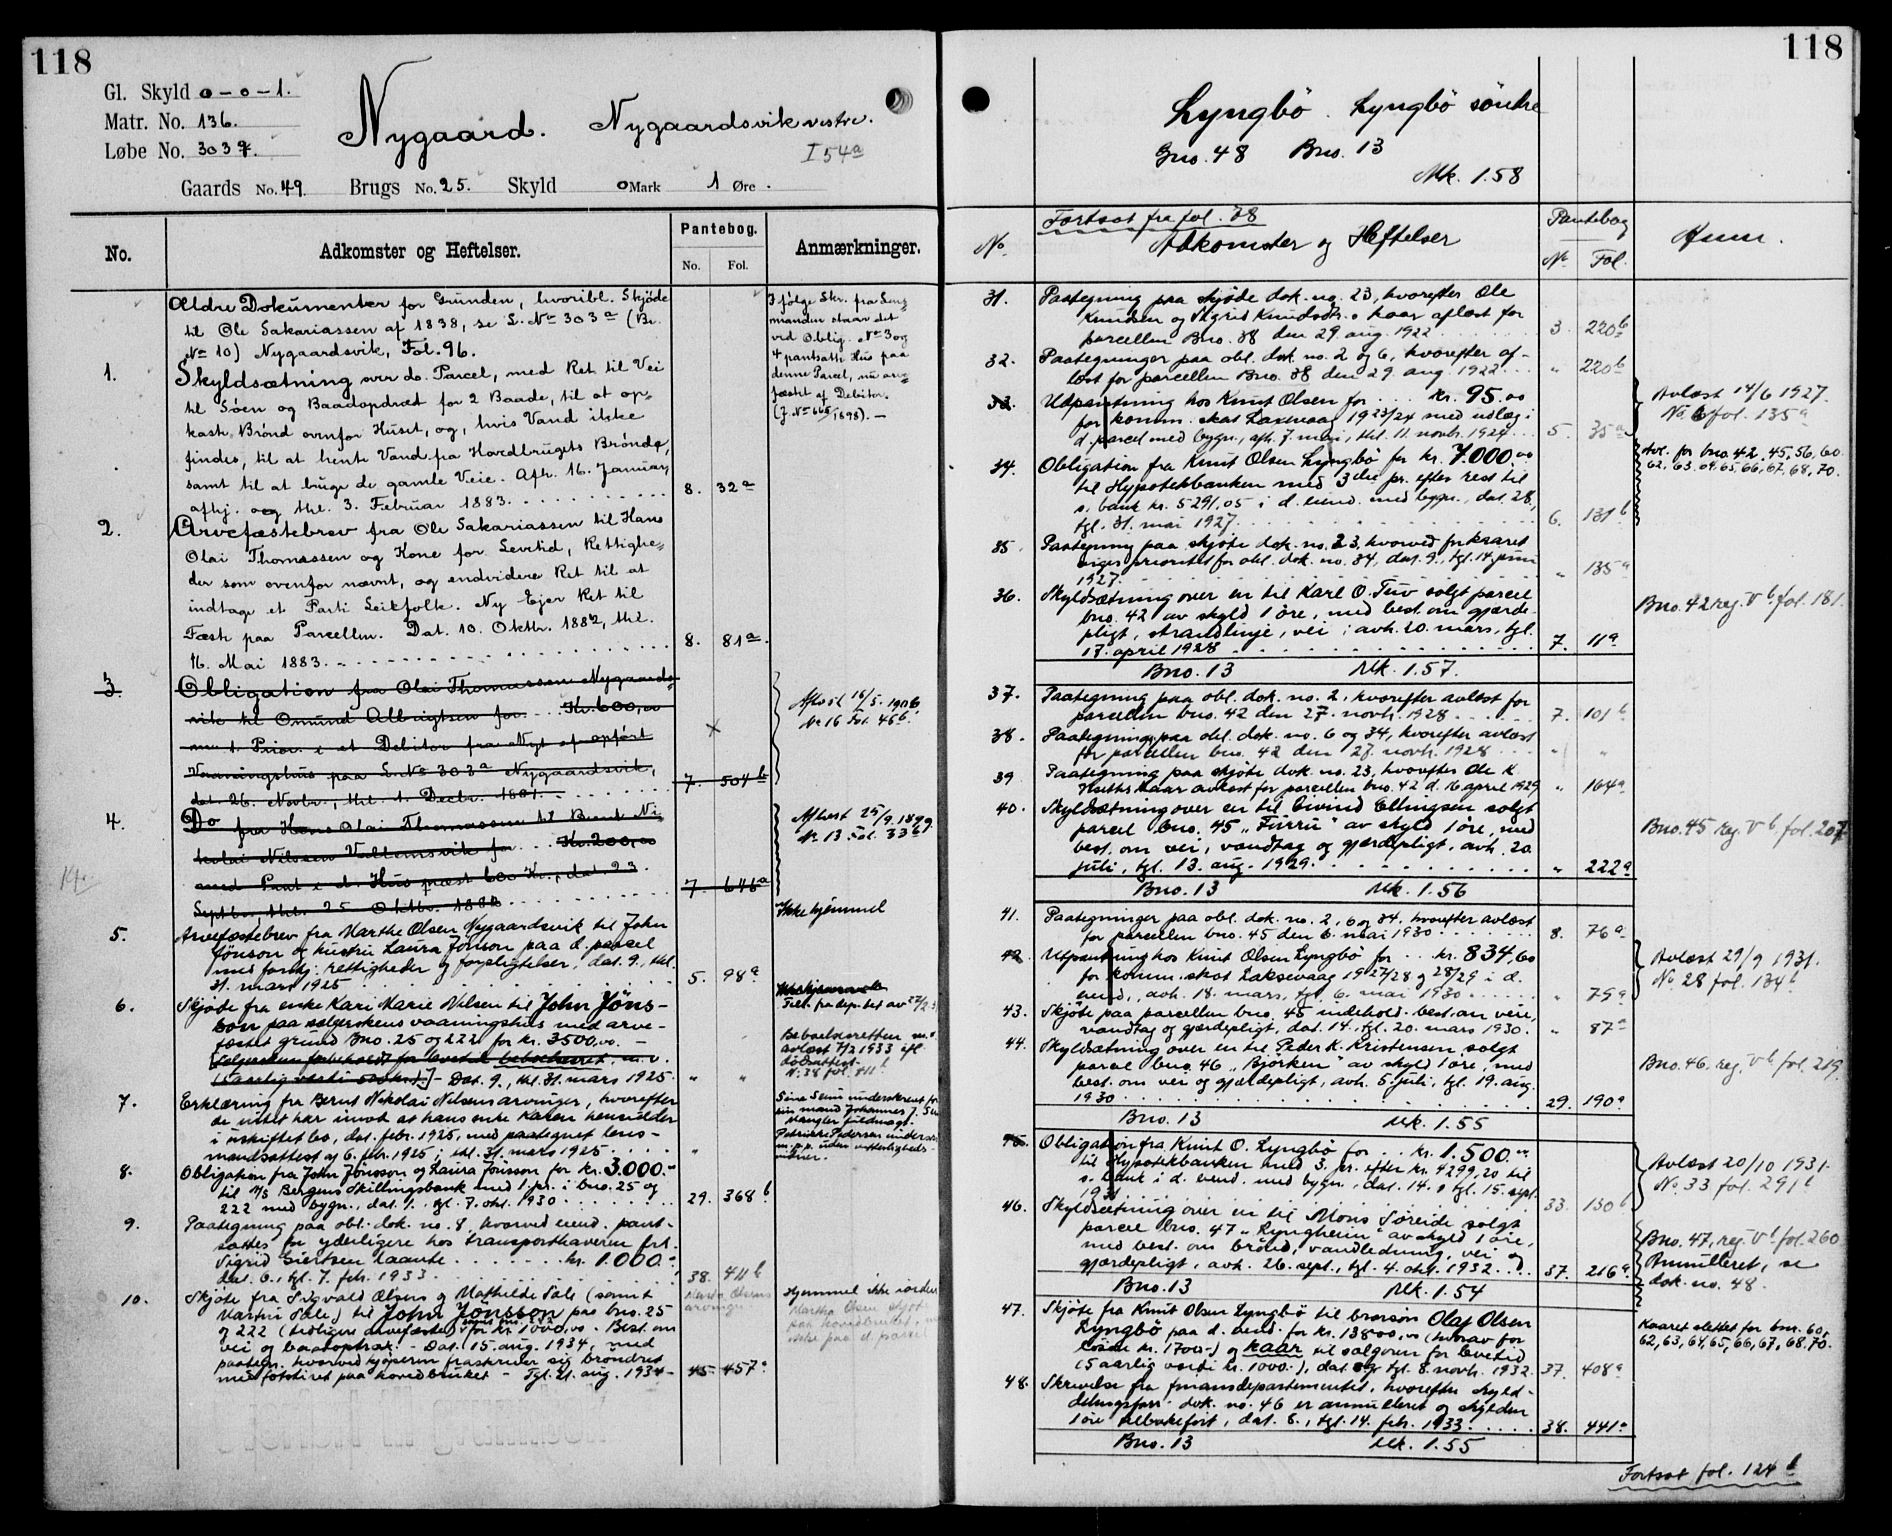 118
Gl. Skyld 0-0-1.
Matr. No. 136.
Løbe No. 303 q.
Nygaard. Nygaardsvik vestre.
I 54a
Gaards No. 49. Brugs No. 25. Skyld 0 Mark 1 Øre.
No.
Adkomster og Heftelser.
Pantebog.
No. Fol.
Anmærkninger.
Ældre Dokumenter for Grunden, hvoribl. Skjøde
til Ole Sakariassen af 1838, se L. No 303a (Br.
No 10) Nygaardsvik, Fol. 96.
1. Skyldsætning over do. Parcel, med Ret til Vei
til Søen og Baadopdræt for 2 Baade, til at op-
kaste Brønd ovenfor Huset, og, hvis Vand ikke
findes, til at hente Vand fra Hovedbrugets Brønde,
samt til at bruge de gamle Veie. Afh. 16. Januar,
afhj. og thl. 3. Februar 1883. 8. 32a
2. Arvefæstebrev fra Ole Sakariassen til Hans
Olai Thomassen og Kone for Levetid, Rettighe-
der som ovenfor nævnt, og endvidere Ret til at
indtage et Parti Leikfolk. Ny Ejer Ret til
Fæste paa Parcellen. Dat. 10. Oktbr. 1882, thl.
16. Mai 1883. 8. 81a.
3. Obligation fra Olai Thomassen Nygaards-
vik til Omund Albrigtsen for Kr. 600,00
mod 1. Prior. i et Debitor fra Nyt af opført
Vaaningshus paa L. No 303a Nygaardsvik,
dat. 26. Novbr., thl. 1. Decbr. 1881. 7. 504b
4. Do fra Hans Olai Thomassen til Bernt Ni-
kolai Nilssen Vallemsvik for Kr. 200,00
med Pant i d. Hus næst 600 Kr., dat. 23.
Septbr., thl. 25 Oktbr. 7. 646a
5. Arvefæstebrev fra Marthe Olsen Nygaardsvik til John
Jönson og hustru Laura Jönson paa d. parcel
med forskj. rettigheder og forpligtelser, dat. 9., thl.
31. mars 1925 5. 98a
6. Skjøde fra enke Kari Marie Nilsen til John Jöns-
son paa sælgerskens vaaningshus med arve-
fæstet grund Bno. 25 og 222 for kr. 3500,00. -
- Dat. 9., thl. 31. mars 1925. " "
7. Erklæring fra Bernt Nikolai Nilsens arvinger, hvorefter
de intet har imot at hans enke Karen hensidder
i uskiftet bo, dat. febr. 1925, med paategnet lens-
mandsattest af 6. febr. 1925; thl. 31. mars 1925 "
8. Obligation fra John Jönsson og Laura Jönsson for kr. 3.000.-
til A/S Bergens Skillingsbank med 1. pr. i bno. 25 og
222 med bygn., dat. 1., tgl. 7. okt. 1930 29. 368b
9. Paategning paa obl. dok. no. 8, hvorved eiend. pant-
sættes for yderligere hos transporthaveren frk.
Sigrid Giertsen laante kr. 1.000.-
dat. 6., tgl. 7. febr. 1933 38. 411b
10. Skjøte fra Sigvald Olsens og Mathilde (samt
) til John Jönsson paa bno. 25
og 222 (tidligere arvefæste) for kr. 1000,00. Best. om
vei og baatoptræk. - Dat. 15. aug. 1934, med
paategn. hvorved kjøperen fraskriver sig brøndret
med fotstiret paa hovedbruket - Tgl. 21. aug. 1934 45 457a
I følge Skr. fra Lens-
manden staar det
ved Oblig. No 3 og
4 pantsatte Hus paa
denne Parcel, nu arve-
fæstet af Debitor.
(J. No 665/1898). -
Aflöst 16/5. 1906.
No 16 Fol. 46b.
Aflæst 25/9. 1899
No 13 Fol. 336
Ikke hjemmel
Beboelsesretten m.v.
avlæst 7/2 1933 ifl.
dødsattest.
N. 38 fol. 411b
Hjemmel ikke iorden
118
Lyngbö. Lyngbö söndre
Gno. 48 Bno. 13
Mk. 1.58
Fortsat fra fol. 78
No.
Adkomster og Heftelser
Pantebog
No. Fol.
Anm.
31. Paategning paa skjøde dok. no. 23, hvorefter Ole
Knudsen og Sigrid Knudsdtr. haar aflæst for
parcellen Bno. 38 den 29. aug. 1922 3. 220b
32. Paategninger paa obl. dok. no. 2 og 6, hvorefter af-
læst for parcellen Bno. 38 den 29. aug. 1922 " 220b
33. Utpantning hos Knut Olsen for kr. 95.00
for komm. skat Laxevaag 1923/24 med utlæg i
d. parcel med bygn., afh. 7. mai, thl. 11. novbr. 1924 5. 35a
34. Obligation fra Knut Olsen Lyngbö for kr. 7.000.00
til Hypotekbanken med 3die pr. efter rest til
s. bank kr. 5291,05 i d. eiend. med bygn., dat. 28,
tgl. 31. mai 1927. 6. 131b
35. Paategning paa skjøte dok. no. 23, hvorved
viges prioritet for obl. dok. no. 34, dat. 9., tgl. 14. juni
1927. " 135a
36. Skyldsætning over en til Karl O. Tuv solgt parcel
bno. 42 av skyld 1 öre, med best. om gjærde-
pligt, strandlinje, vei; avh. 20. mars, tgl.
17. april 1928 7. 11a
Bno. 13 Mk. 1.57.
37. Paategning paa obl. dok. no. 2, hvorefter avlæst for
parcellen bno. 42 den 27. novbr. 1928 7. 101b
38. Paategning paa obl. dok. no. 6 og 34, hvorefter avlæst
for parcellen bno. 42 den 27. novbr. 1928 " "
39. Paategning paa skjøte dok. no. 23, hvorefter Ole K.
kaar avlæst for parcellen bno. 42 d. 16 april 1929 " 164a
40. Skyldsætning over en til Eivind Ellingsen solgt
parcel bno. 45 „Furru" av skyld 1 öre, med
best. om vei, vandtag og gjærdepligt, avh. 20
juli, tgl. 13. aug. 1929. " 222a
Bno. 13 Mk. 1.56
41. Paategninger paa obl. dok. no. 2, 6 og 34, hvorefter avlæst
for parcellen bno. 45 den 6. mai 1930 8. 76a
42. Utpantning hos Knut Olsen Lyngbö for kr. 834,60
for komm. skat Laksevaag 1927/28 og 28/29 i d.
eiend., avh. 18. mars, tgl. 6. mai 1930 " 79a
43. Skjøte paa parcellen bno. 45 indehold. best. om vei,
vandtag og gjærdepligt, dat. 14., tgl. 20. mars 1930. " 87a
44. Skyldsætning over en til Peder K. Kristensen solgt
parcel bno. 46 „Björken" av skyld 1 öre, med
best. om vei og gjærdepligt, avh. 5. juli, tgl. 19. aug.
1930 29. 190a
Bno. 13 Mk. 1.55
45. Obligation fra Knut O. Lyngbö for kr. 1.500.00
til Hypotekbanken med 3. pr. efter kr. 4299,20 til
s. bank i d. eiend. med bygn., dat. 14., tgl. 15. sept.
1931 33. 130b
46. Skyldsætning over en til Mons Søreide solgt
parcel bno. 47 „Lyngheim" av skyld 1 öre,
med best. om brönd, vandledning, vei og
gjærdepligt, avh. 26. sept., tgl. 4. okt. 1932. 37. 216a
Bno. 13 Mk. 1.54
47. Skjøte fra Knut Olsen Lyngbö til brorsön Olaf Olsen
Lyngbö paa d. eiend. for kr. 13800,00 (hvorav for
lösöre kr. 1700.-) og kaar til sælgeren for levetid
(5 aarlig værdi kr. 1000.-), dat. og tgl. 8. novbr. 1932. 37. 408a
48. Skrivelse fra finansdepartementet, hvorefter skyld-
delingsforr. dok. no. 46 er annulleret og skylden
1 öre tilbakeført, dat. 8., tgl. 14. febr. 1933 38. 441a
Bno. 13 Mk. 1.55
Avlæst 14/6 1927.
No. 6 fol. 135a
Avl. for bno. 42, 45, 56, 60
62, 63, 64, 65, 66, 67, 68, 70.
Bno. 42 reg. Vb. fol. 181.
Bno. 45 reg. Vb. fol. 207
Avlæst 29/9 1931.
No. 28 fol. 134b
Bno. 46. reg. Vb fol. 219.
Avlæst 20/10 1931.
No. 33 fol. 291b
Bno. 47, reg. Vb. fol. 260
Annulleret, se
dok. no. 48.
Kaaret slettet for bnr. 60,
62, 63, 64, 65, 66, 67, 68, 70.
Fortsat fol. 124b